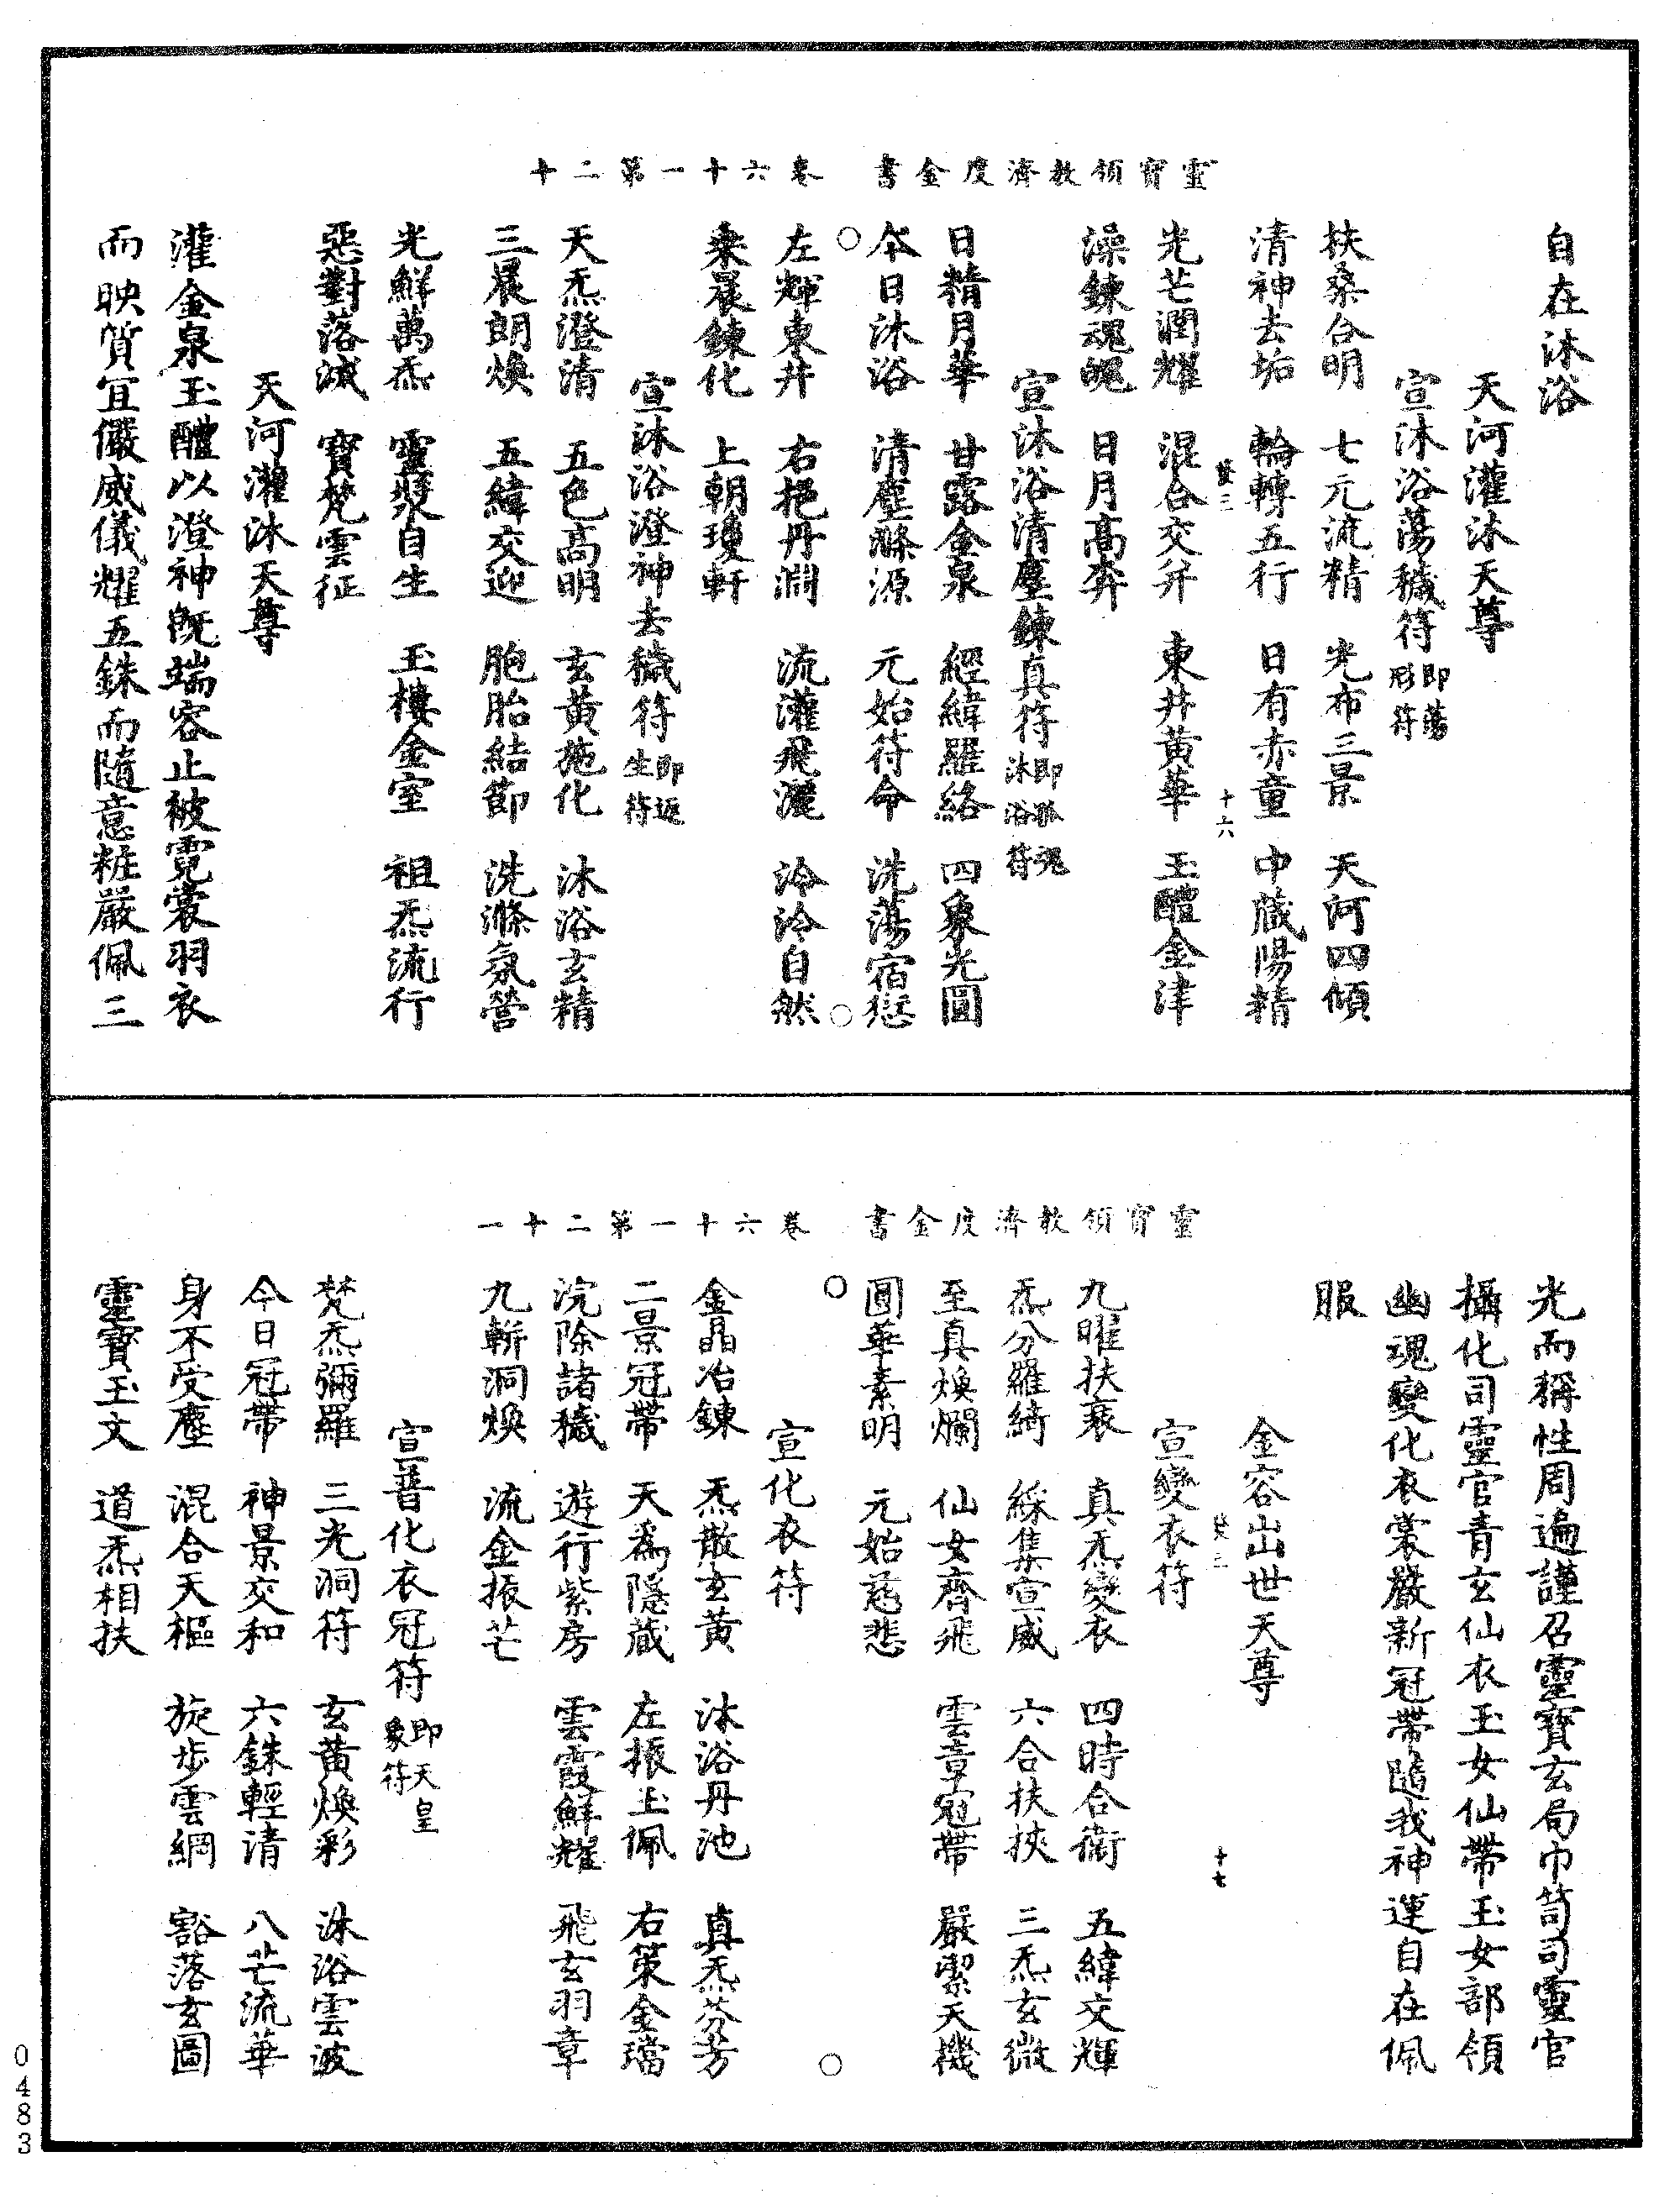 靈寶領教濟度金書　卷六十一第二十
自在沐浴
天河灌沐天尊
宣沐浴蕩穢符即蕩形符
扶桑合明　七元流精　光布三景　天河四傾
清神去垢　輪轉五行　日有赤童　中藏陽精
十六
光芒潤耀　混合交并　東井黃華　玉醴金津
澡鍊魂魄　日月高奔
宣沐浴清塵鍊真符即孤魂沐浴符
日精月華　甘露金泉　經緯羅絡　四象光圓
本日沐浴　清塵滌源　元始符命　洗蕩宿愆
左輝東井　右挹丹淵　流灌飛灑　泠泠自然
乘晨鍊化　上朝瓊軒
宣沐浴澄神去穢符即返生符
天炁澄清　五色高明　玄黃施化　沐浴玄精
三晨朗煥　五緯交迎　胞胎結節　洗滌氛營
光鮮萬炁　靈漿自生　玉樓金室　祖炁流行
惡對落滅　寶梵雲征
天河灌沐天尊
灌金泉玉醴以澄神既端容止被霓裳羽衣
而映質宜儼威儀耀五銖而隨意粧嚴佩三
靈寶領教濟度金書　卷六十一第二十一
光而稱性周遍謹召靈寶玄局巾笥司靈官
攝化司靈官青玄仙衣玉女仙帶玉女部領
幽魂變化衣裳嚴新冠帶隨我神運自在佩
服
金容出世天尊
十七
宣變衣符
九曜扶衰　真炁變衣　四時合衛　五緯文輝
炁分羅綺　綵集宣威　六合扶挾　三炁玄微
至真煥爛　仙女齊飛　雲章冠帶　嚴潔天機
圓華素明　元始慈悲
宣化衣符
金晶冶鍊　炁散玄黃　沐浴丹池　真炁芬芳
二景冠帶　天爲隱藏　左振玉佩　右策金璫
浣除諸穢　遊行紫房　雲霞鮮耀　飛玄羽章
九輧洞煥　流金振芒
宣普化衣冠符即天皇象符
梵炁彌羅　三光洞符　玄黃煥彩　沐浴雲波
今日冠帶　神景交和　六銖輕清　八芒流華
身不受塵　混合天樞　旋步雲綱　豁落玄圖
靈寶玉文　道炁相扶
0483